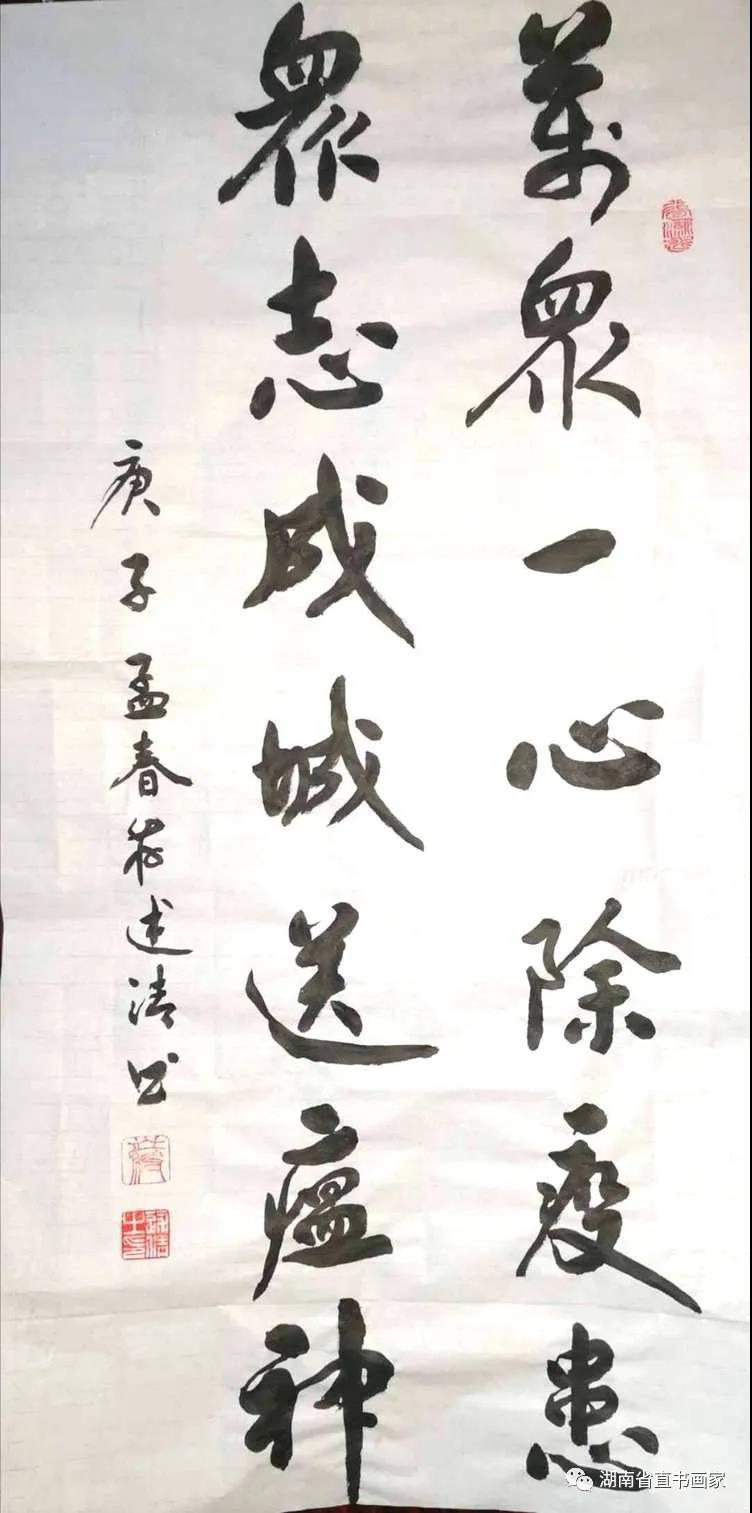 萬眾一心除疫患
眾志成城送瘟神
庚子孟春蔣述清书
湖南省直书画家